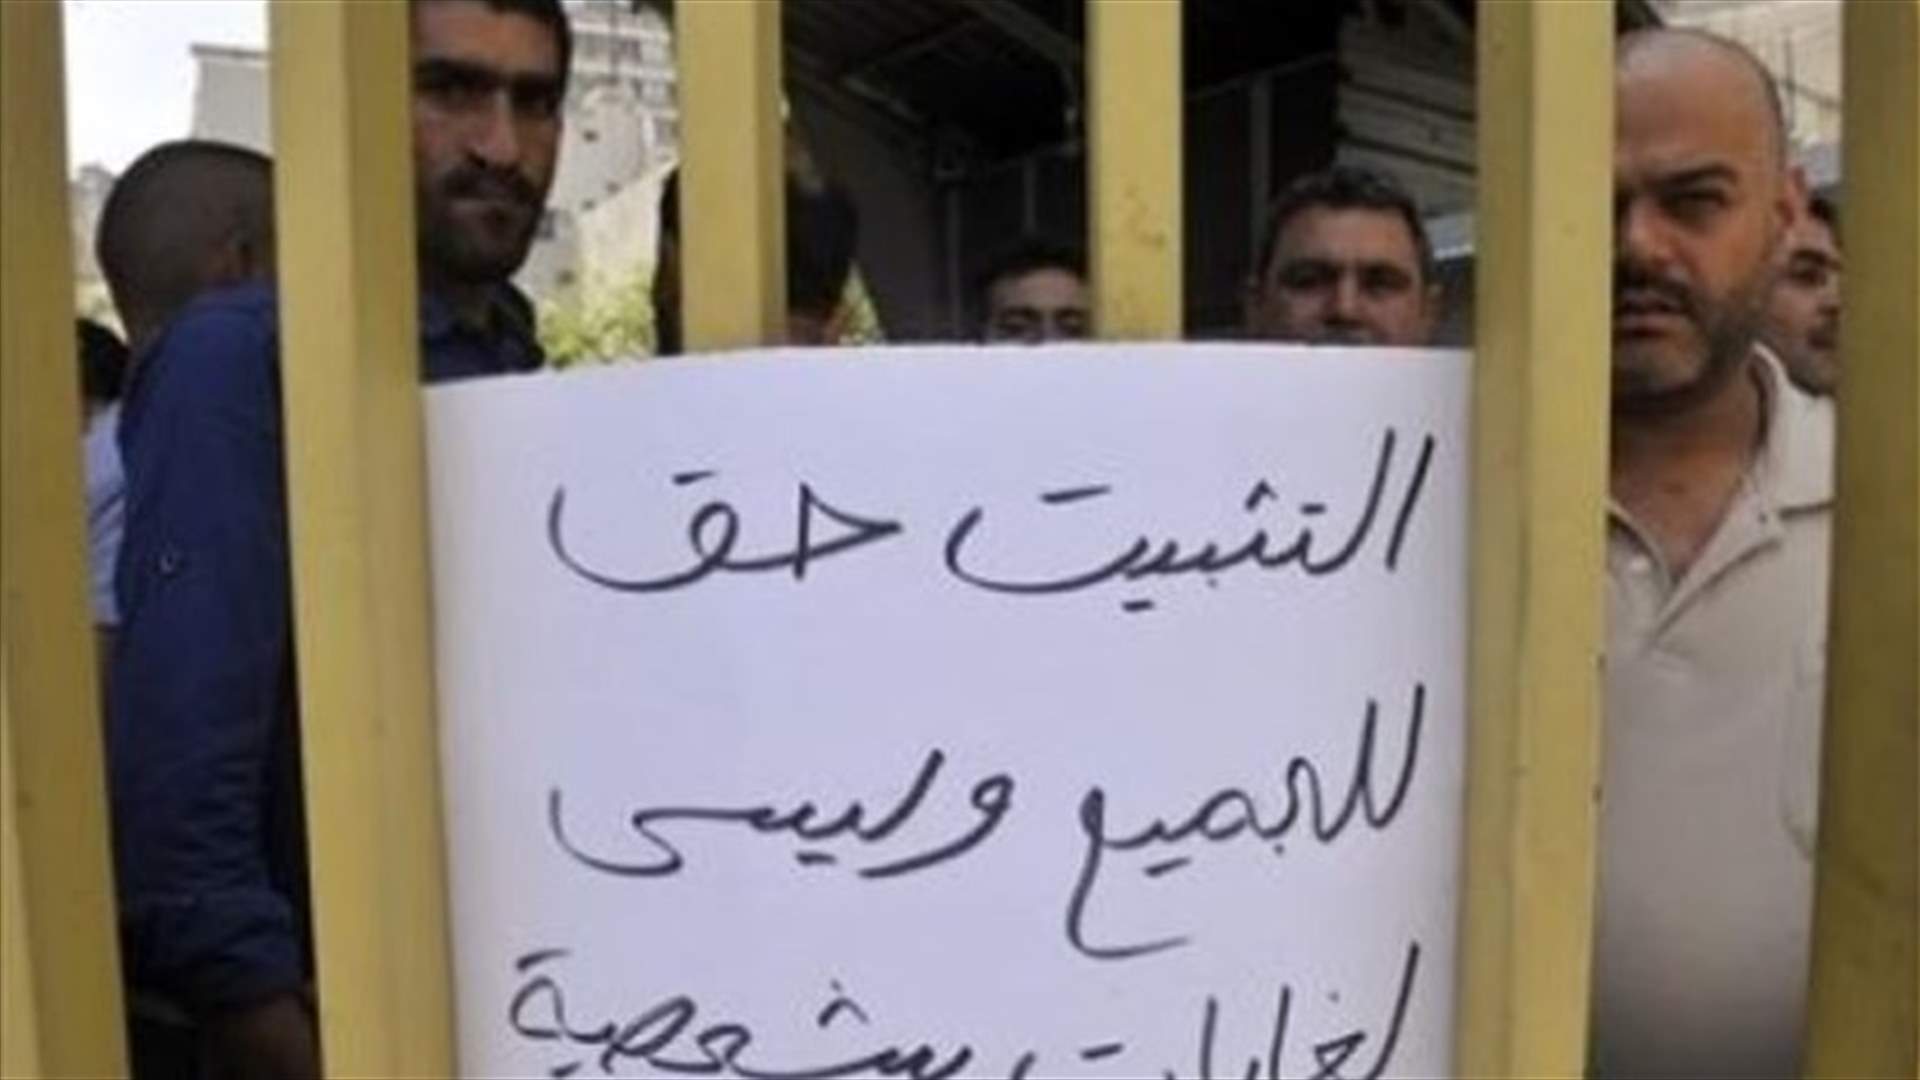 التثبيت حق
للجميع وليس
لغايات شخصية